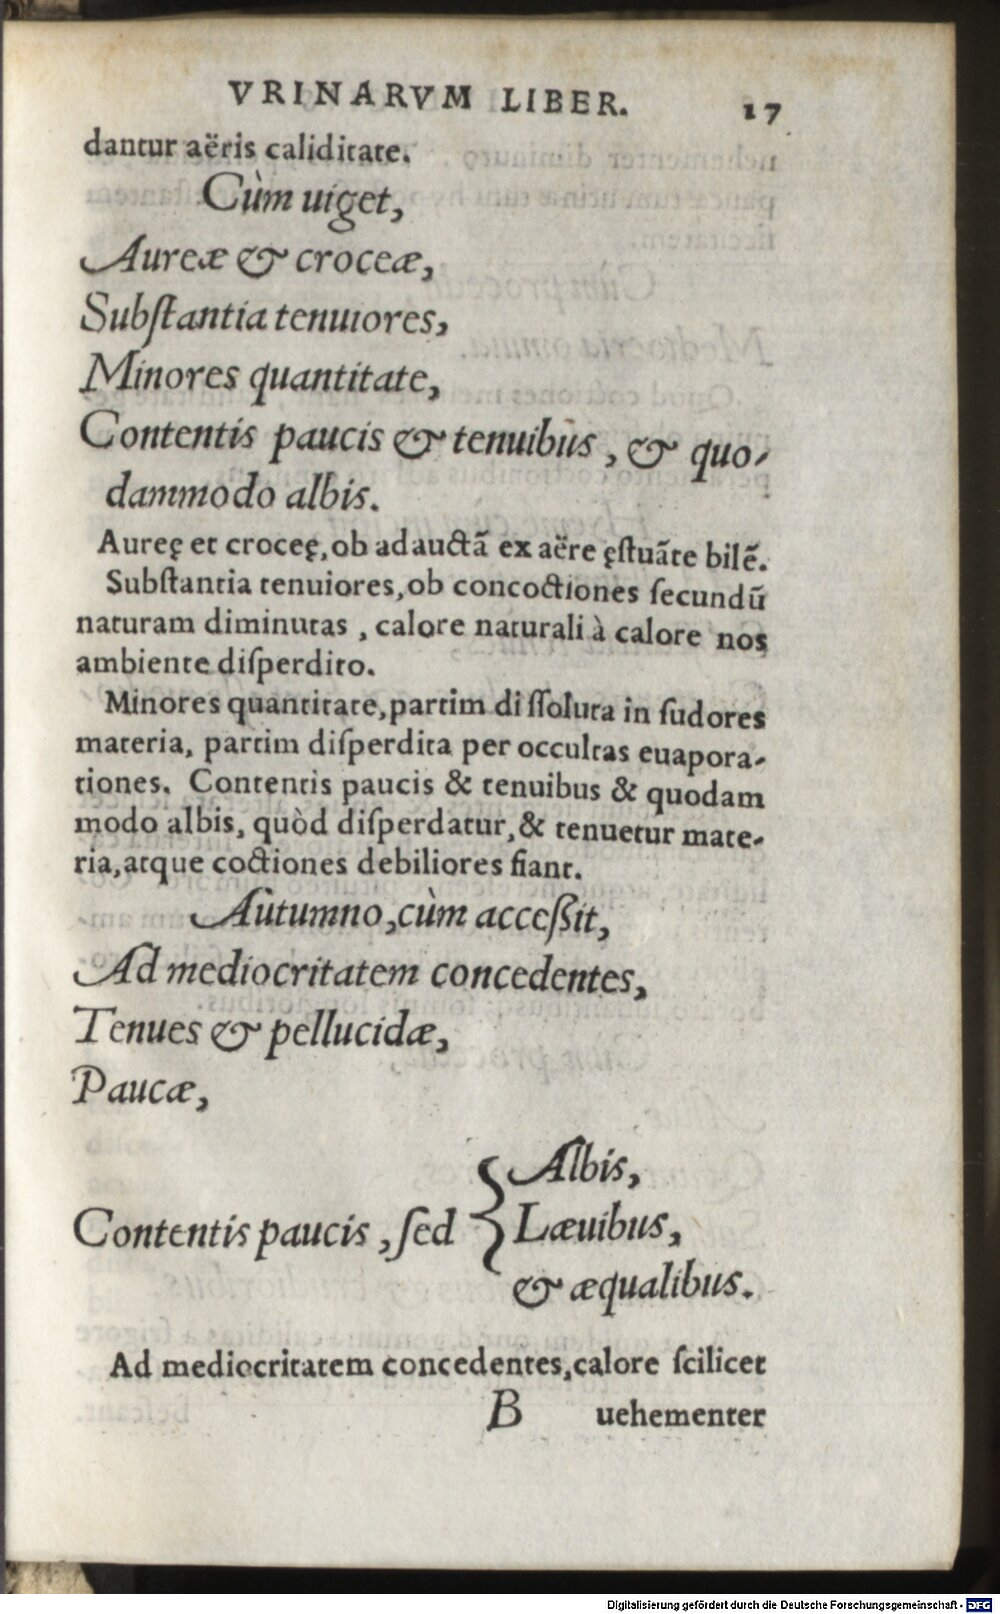 VRINARVM LIBER. 17
dantur aëris caliditate.
Cùm uiget,
Aureæ & croceæ,
Substantia tenuiores,
Minores quantitate,
Contentis paucis & tenuibus, & quo-
dammodo albis.
Aureę et croceę, ob adauctā ex aëre ęstuāte bilē.
Substantia tenuiores, ob concoctiones secundū
naturam diminutas, calore naturali à calore nos
ambiente disperdito.
Minores quantitate, partim dissoluta in sudores
materia, partim disperdita per occultas euapora-
tiones. Contentis paucis & tenuibus & quodam
modo albis, quòd disperdatur, & tenuetur mate-
ria, atque coctiones debiliores fiant.
Autumno, cùm accessit,
Ad mediocritatem concedentes,
Tenues & pellucidæ,
Paucæ,
Albis,
Contentis paucis, sed Læuibus,
& æqualibus.
Ad mediocritatem concedentes, calore scilicet
B uehementer
Digitalisierung gefördert durch die Deutsche Forschungsgemeinschaft - DFG